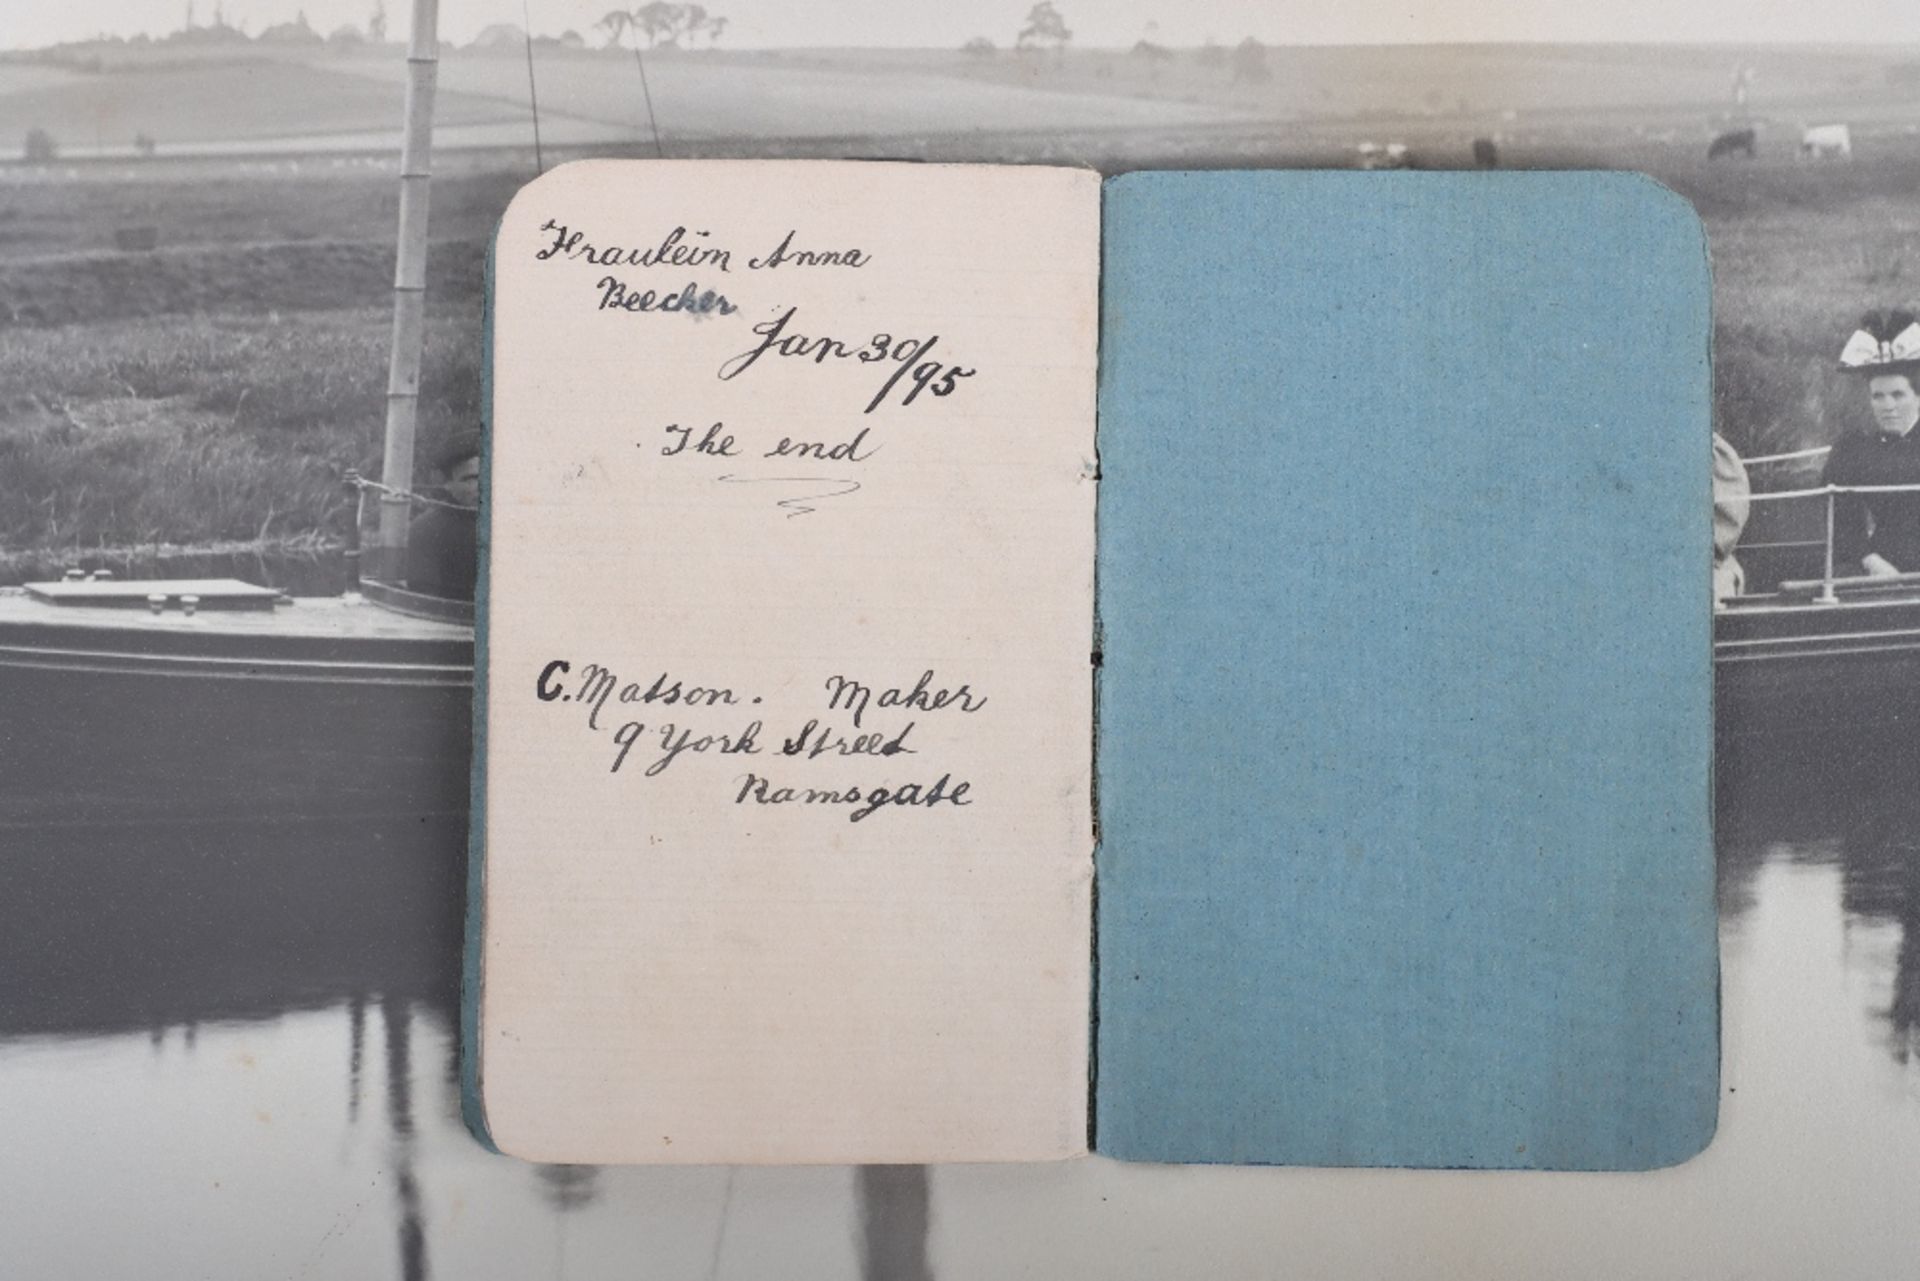 Fraulein Anna
Beecker
Jan 30/95
The end
C. Matson. Maker
9 York Street
Ramsgate